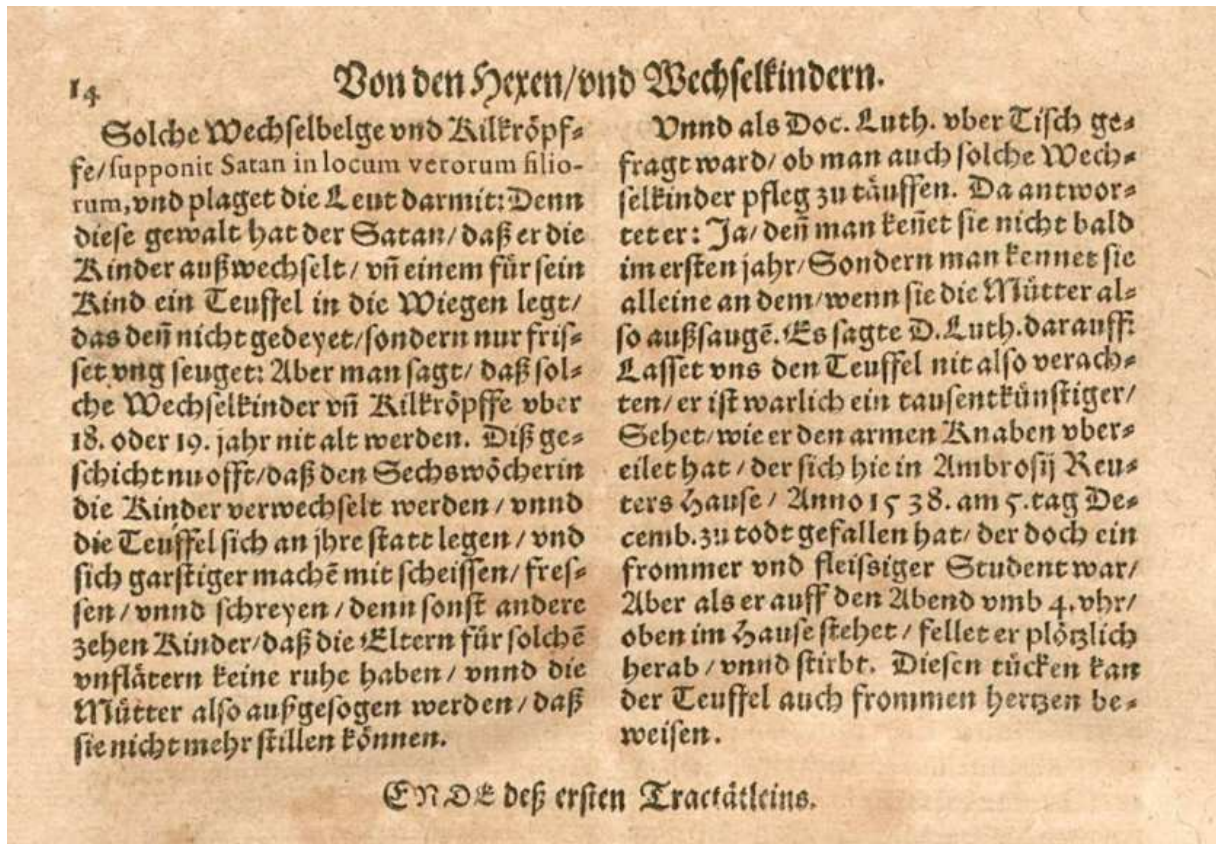 14
Von den Hexen/vnd Wechselkindern.
Solche Wechselbelge vnd Kilkröpf⸗
fe/supponit Satan in locum verorum filio-
rum,vnd plaget die Leut darmit: Denn
diese gewalt hat der Satan/daß er die
Kinder außwechselt/vñ einem für sein
Kind ein Teuffel in die Wiegen legt/
das deñ nicht gedeyet/sondern nur fris⸗
set vng seuget: Aber man sagt/daß sol⸗
che Wechselkinder vñ Kilkröpffe vber
18. oder 19. jahr nit alt werden. Diß ge⸗
schicht nu offt/daß den Sechswöcherin
die Kinder verwechselt werden/vnnd
die Teuffel sich an jhre statt legen/vnd
sich garstiger machẽ mit scheissen/fres⸗
sen/vnnd schreyen/denn sonst andere
zehen Kinder/daß die Eltern für solchẽ
vnflätern keine ruhe haben/vnnd die
Mütter also außgesogen werden/daß
sie nicht mehr stillen können.
Vnnd als Doc. Luth. vber Tisch ge⸗
fragt ward/ob man auch solche Wech⸗
selkinder pfleg zu täuffen. Da antwor⸗
tet er: Ja/deñ man keñet sie nicht bald
im ersten jahr/Sondern man kennet sie
alleine an dem/wenn sie die Mütter al⸗
so außsaugẽ. Es sagte D. Luth. darauff:
Lasset vns den Teuffel nit also verach⸗
ten/er ist warlich ein tausentkünstiger/
Sehet/wie er den armen Knaben vber⸗
eilet hat/der sich hie in Ambrosij Reu⸗
ters Hause/Anno 1538. am 5. tag De⸗
cemb. zu todt gefallen hat/der doch ein
frommer vnd fleissiger Student war/
Aber als er auff den Abend vmb 4. vhr/
oben im Hause stehet/fellet er plötzlich
herab/vnnd stirbt. Diesen tücken kan
der Teuffel auch frommen hertzen be⸗
weisen.
ENDE deß ersten Tractätleins.